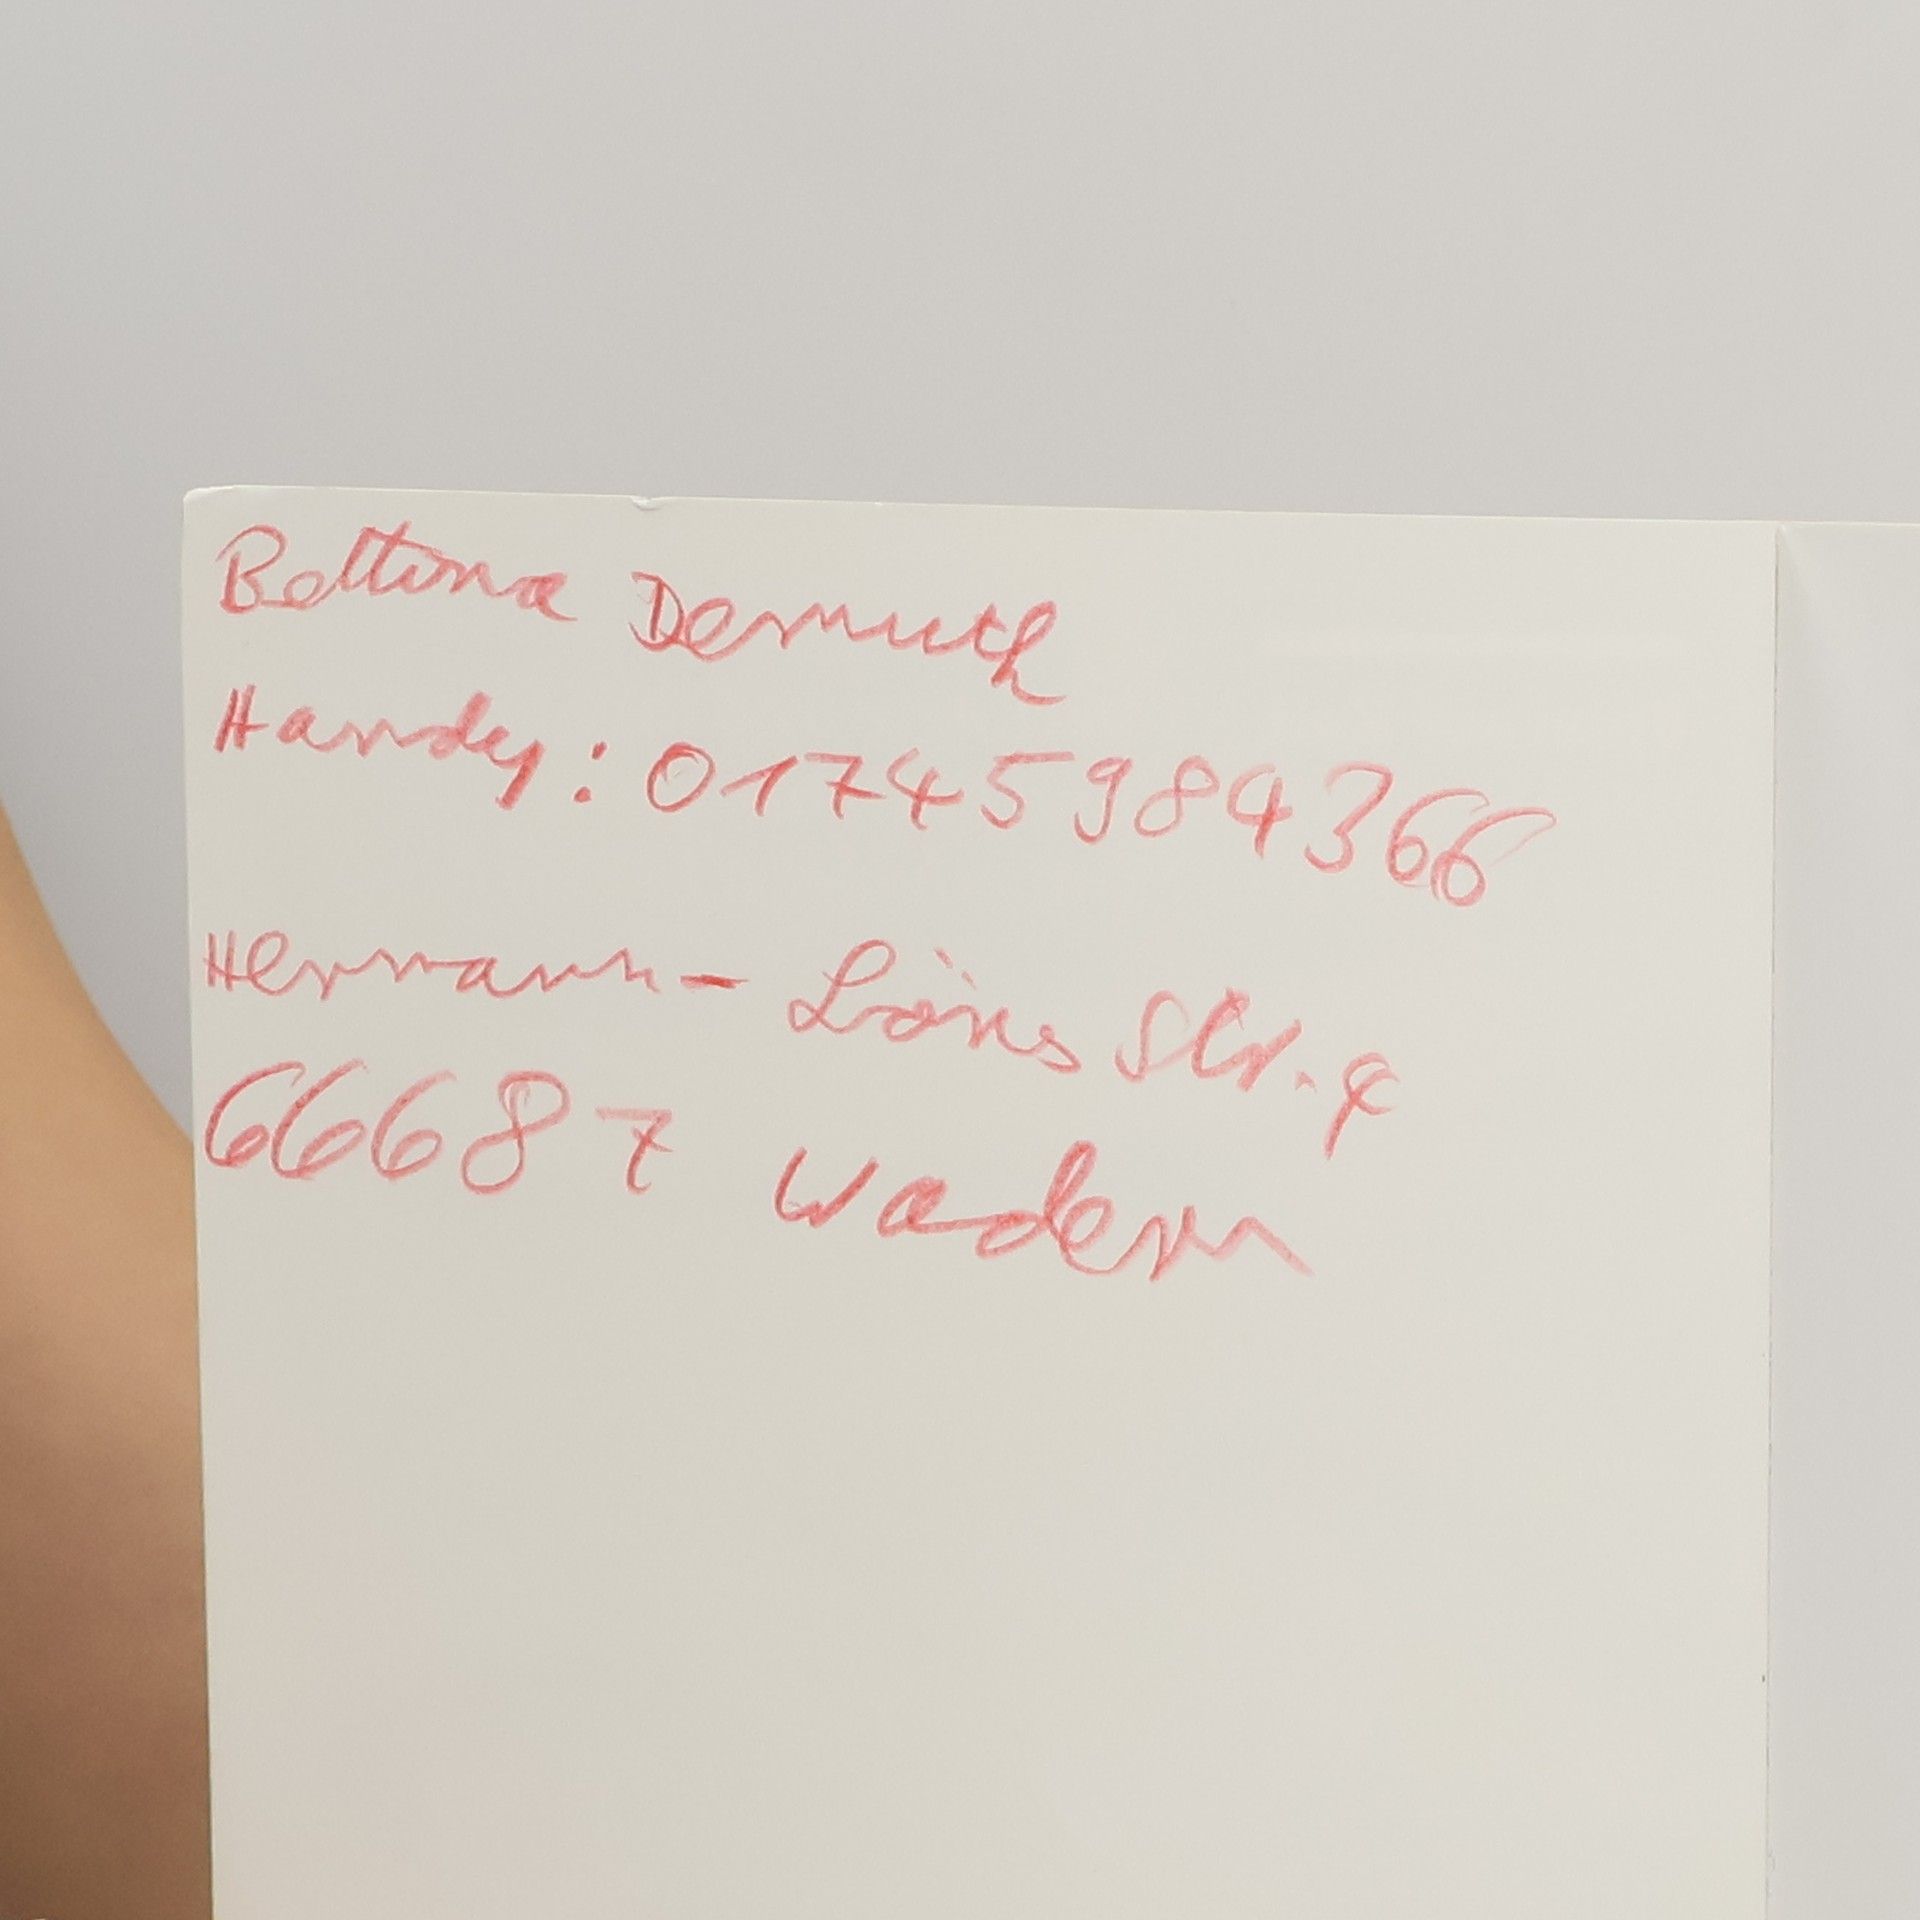 Bettina Demuth
Handy: 01745984366
Hermann-Löns Str. 4
66687 Wadern